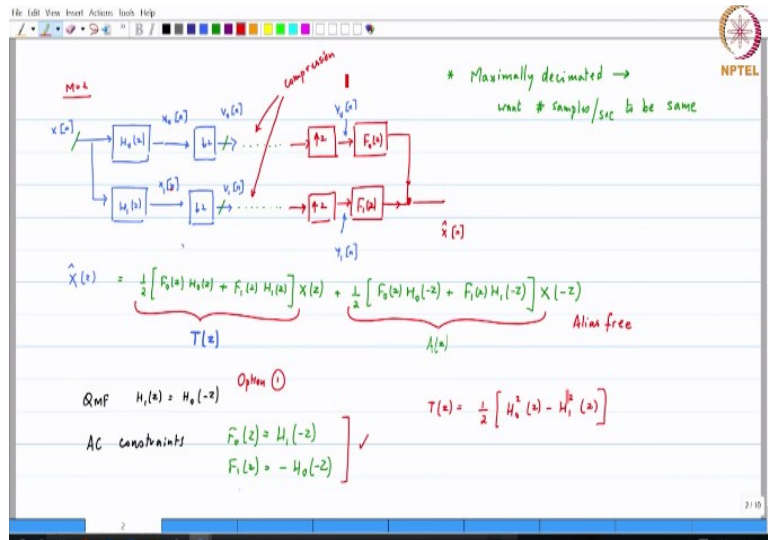 File Edit View Insert Actions Tools Help
NPTEL
M=2
compression
* Maximally decimated →
want # samples/sec to be same
x[n] H₀(z) x₀[n] ↓2 v₀[n] ....... ↑2 y₀[n] F₀(z)
H₁(z) x₁[n] ↓2 v₁[n] ....... ↑2 y₁[n] F₁(z)
x̂[n]
X̂(z) = 1/2 [F₀(z) H₀(z) + F₁(z) H₁(z)] X(z) + 1/2 [F₀(z) H₀(-z) + F₁(z) H₁(-z)] X(-z)
T(z) A(z) Alias free
Option ①
QMF H₁(z) = H₀(-z)
T(z) = 1/2 [H₀²(z) - H₁²(z)]
AC constraints F₀(z) = H₁(-z)
F₁(z) = - H₀(-z) ✓
2/10
2